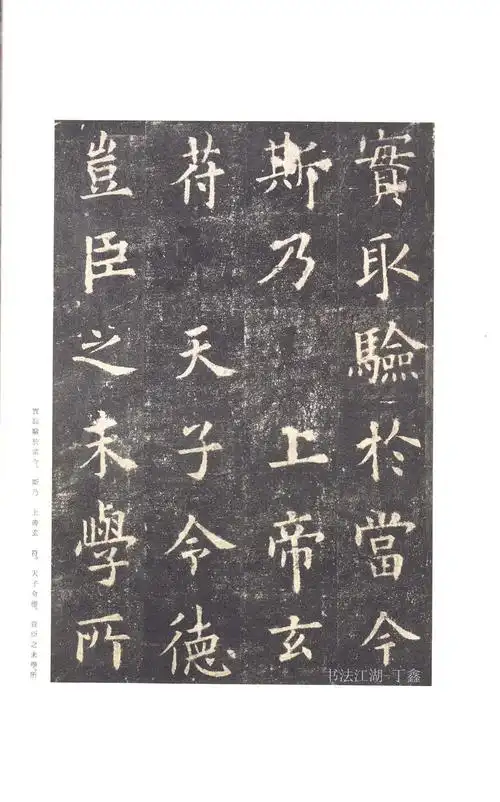 實取驗於當今
斯乃 上帝玄
苻 天子令德
豈臣之末學所
實取驗於當今、斯乃 上帝玄 符、天子令德、豈臣之末學所
书法江湖-丁鑫